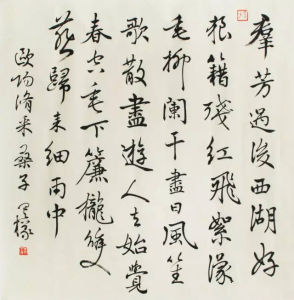 羣芳過後西湖好
狼籍殘紅飛絮濛
垂柳闌干盡日風笙
歌散盡遊人去始覺
春空垂下簾櫳雙
燕歸來細雨中
歐陽脩采桑子